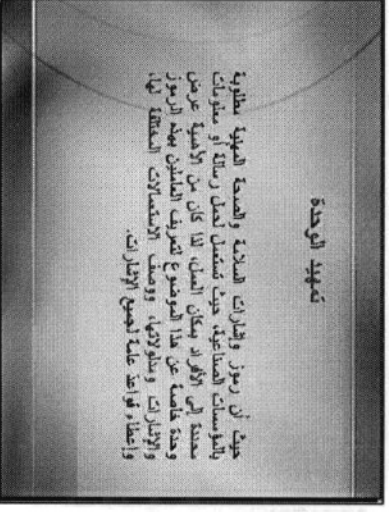 تمهيد الوحدة
حيث أن رموز وإشارات السلامة والصحة المهنية مطلوبة
بالمؤسسات الصناعية، حيث تستعمل لحمل رسالة أو معلومات
محددة إلى الأفراد بمكان العمل، لذا كان من الأهمية عرض
وحدة خاصة عن هذا الموضوع لتعريف العاملين بهذه الرموز
والإشارات ومدلولاتها، ووصف الاستعمالات المختلفة لها،
وإعطاء قواعد عامة لجميع الإشارات.